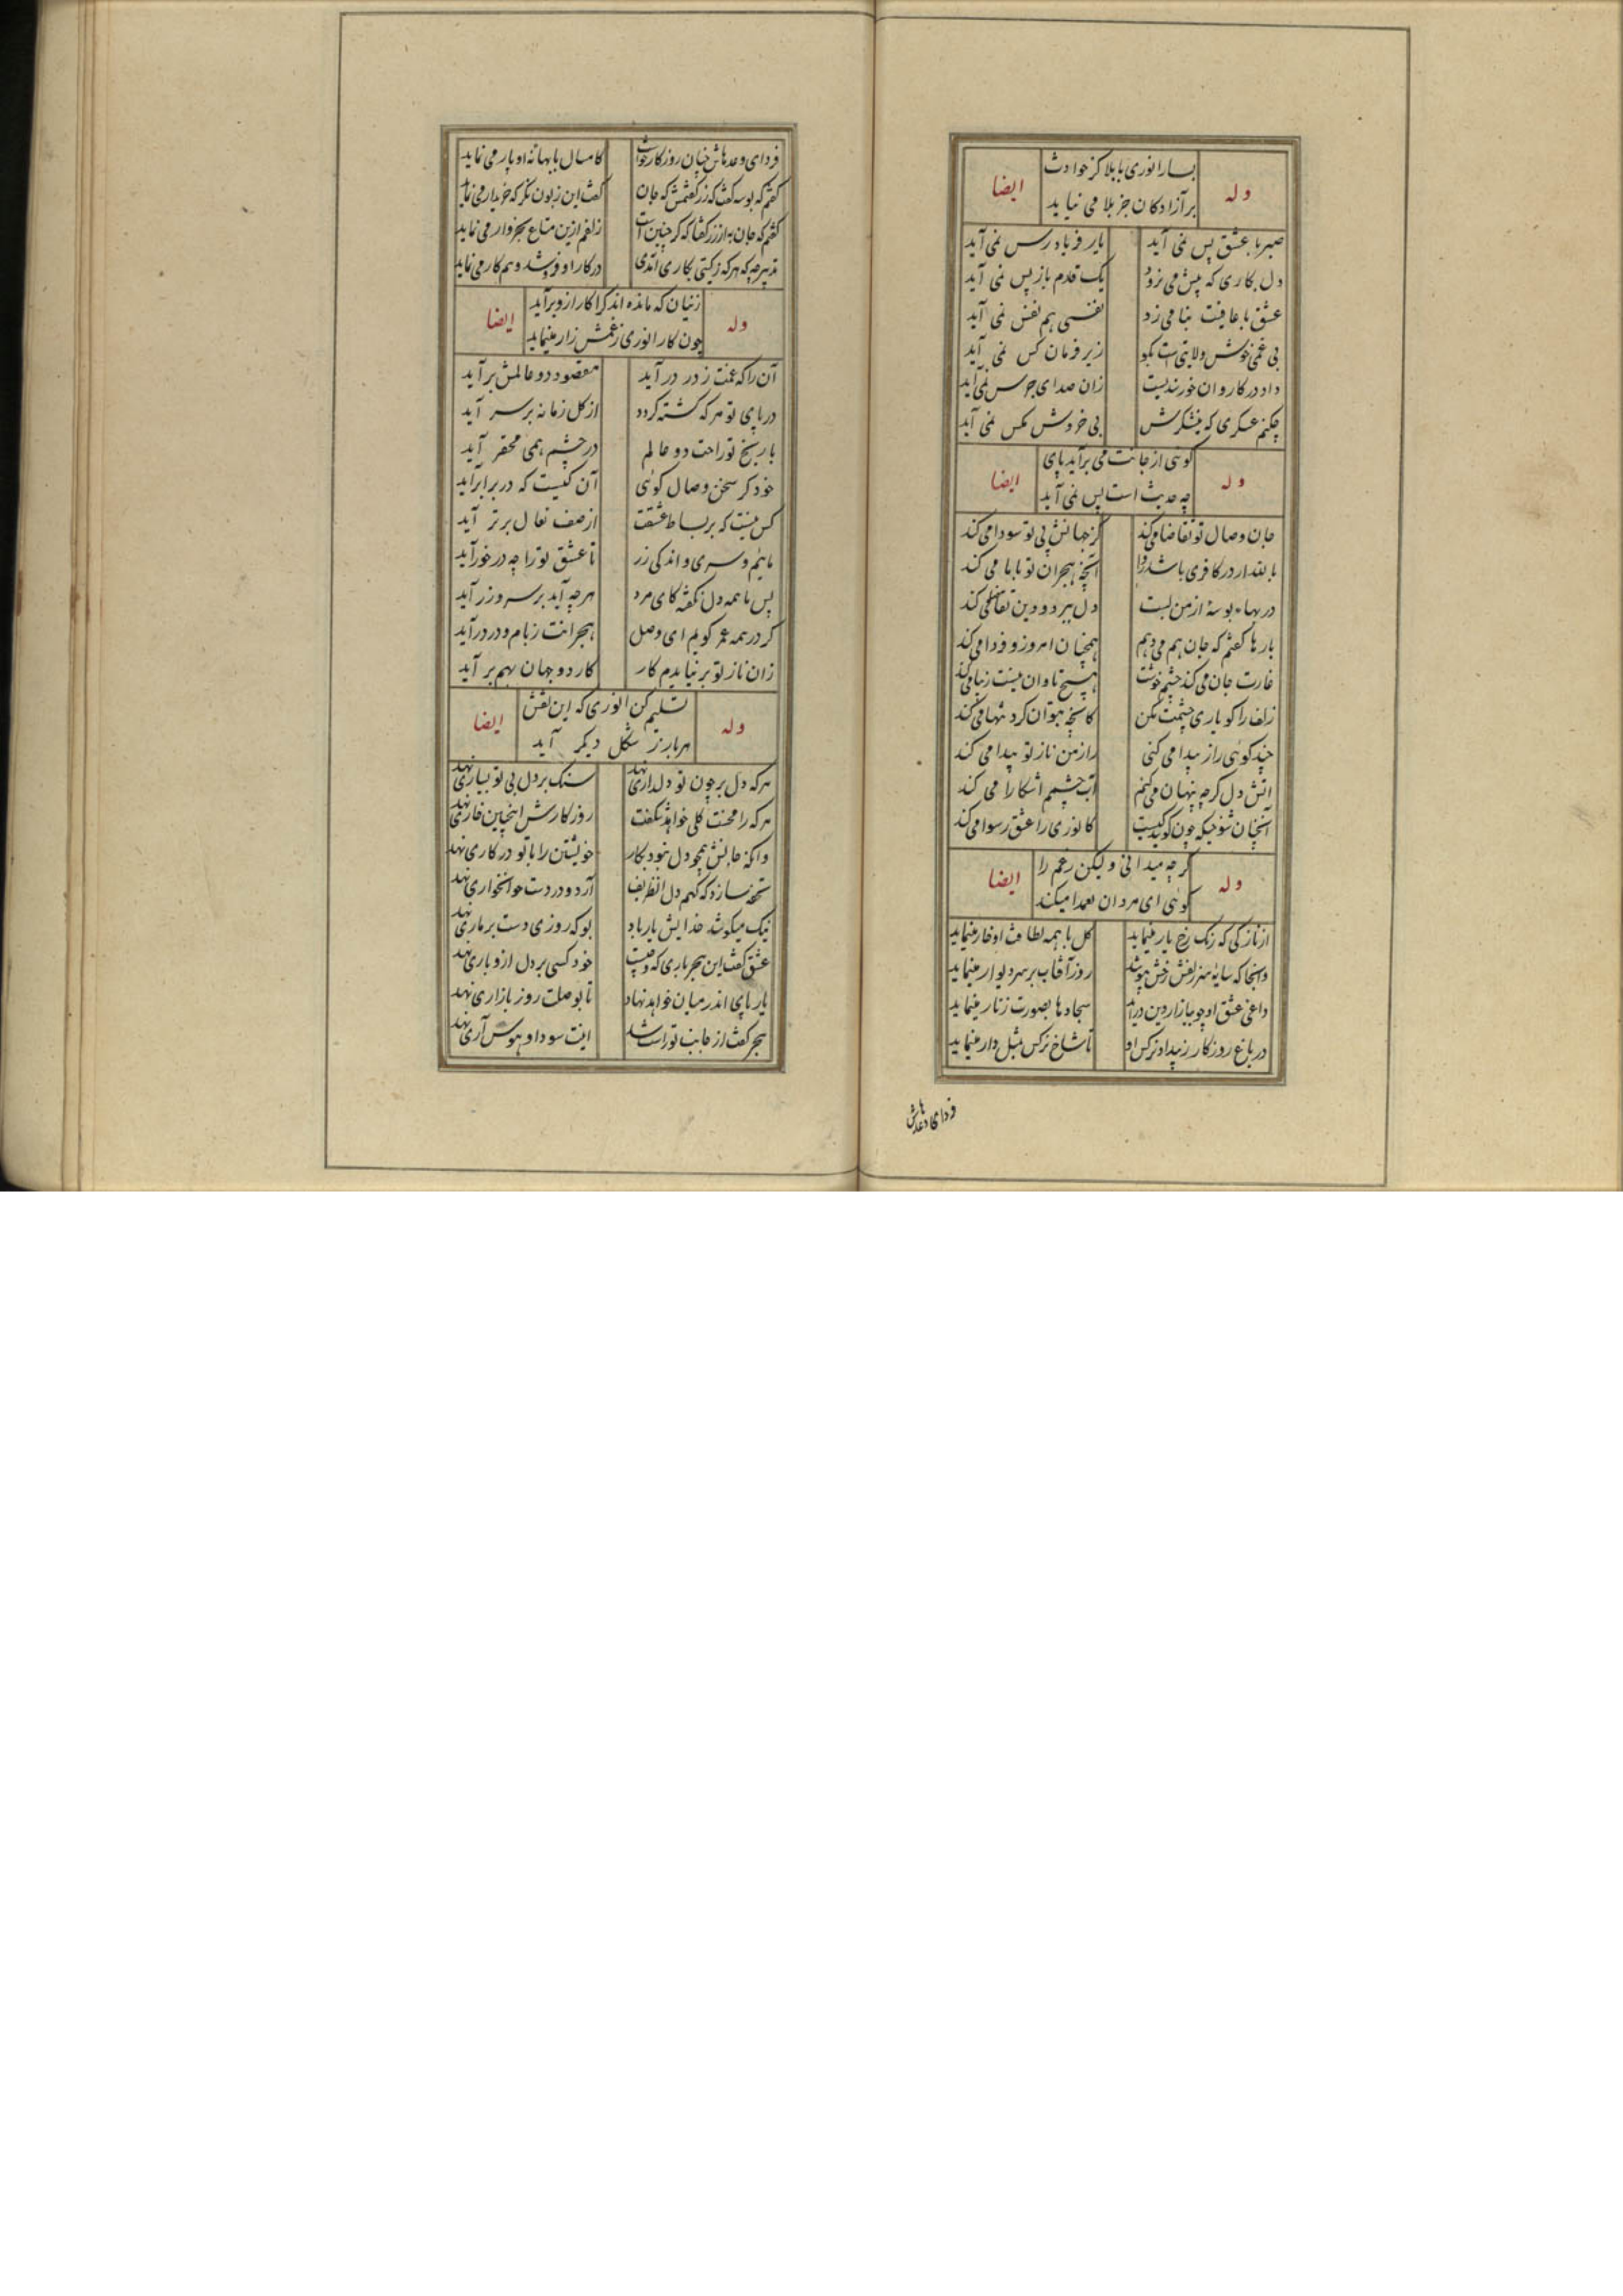 بسازا نوری با بلا کز حوادث
وله ایضا
بر آزادکان جز بلا می نیاید
صبر با عشق پس نمی آید یار فریاد رس نمی آید
دل بکاری که پیش می نرود یک قدم باز پس نمی آید
عشق با عافیت نیامیزد نفسی هم نفس نمی آید
بی غمی خوش ولایتی است زیر فرمان کس نمی آید
داد در کاروان خورسندیست زان صدای جرس نمی آید
چکنم عسکری که نیشکرش بی خروش مکس نمی آید
کوئی از جانت می برآید پای
وله ایضا
چه حدیث است پس نمی آید
جان وصال تو تقاضا می کند کز جهانش بی تو سودا می کند
بالله ار در کافری باشد روا آنچه هجران تو با ما می کند
در بهاء بوسهٔ از من لبت دل ببرد و دین تقاضا می کند
بارها کفتم که جان هم می دهم همچنان امروز و فردا می کند
غارت جان می کند چشم خوشت هیچ تاوان نیست زیبا می کند
زلف را کو یاری چشمت مکن کانچه بتوان کرد تنها می کند
چند کوئی راز پیدا می کنی راز من ناز تو پیدا می کند
آتش دل کرچه پنهان می کنم آب چشمم آشکارا می کند
آنچنان شوخی که چون کویند کیست کانوری را عشق رسوا می کند
کرچه میدانی ولیکن رغم را
وله ایضا
کوئی ای مردان بعمدا میکند
از نازکی که رنک رخ یار مینماید کل با همه لطافت او خار مینماید
وانجا که سایهٔ سر زلفش رخش بپوشد روز آفتاب بر سر دیوار مینماید
داعی عشق او چو ببازار دین درآید سجادها بصورت زنار مینماید
در باغ روزکار ز بیداد نرکس او تا شاخ نرکس بمثل دار مینماید
فردای وعدهاش
فردای وعدهاش چنان روزکار خواست کامسال با بهانهٔ او پار می نماید
کفتم که بوسه کفت که زر کفتمش که جان کفت این زبون نکر که خریدار می نماید
کفتم که جان به از زر کفتا که کر چنین است زلفم ازین متاع بخروار می نماید
تدبیر چه که هرکه ز کیتی بکاری افتدی در کار او فروشد و هم کار می نماید
زینان که مانده اند کرا کار ازو برآید
وله ایضا
چون کار انوری ز غمش زار مینماید
آن را که غمت ز در در آید مقصود دو عالمش برآید
در پای تو هر که کشته کردد از کل زمانه بر سر آید
با رنج تو راحت دو عالم در چشم همی محقر آید
خود کر سخن وصال کوئی آن کیست که در برابر آید
کس نیست که بر بساط عشقت از صف نعال برتر آید
مائیم و سری و اندکی زر تا عشق تو را چه در خور آید
پس با همه دل نکفته کای مرد هرچه آید بر سر و زر آید
کر در همه عمر کویم ای وصل هجرانت ز بام و در در آید
زان ناز تو بر نیایدم کار کار دو جهان بهم بر آید
تسلیم کن انوری که این نقش
وله ایضا
هر بار ز شکل دیکر آید
هر که دل بر چون تو دلداری نهد سنک بر دل بی تو بسیاری نهد
هر که را محنت کلی خواهد شکفت روزکارش اینچنین خاری نهد
وانکه جانش همچو دل نبود بکار خویشتن را با تو در کاری نهد
تحفه سازد که کهم دل انظریف آرد و در دست خوانخواری نهد
نیک میکوشد خدایش یار باد بو که روزی دست بر ماری نهد
عشق کفت این هجر باری که کیست خود کسی بر دل ازو باری نهد
یار پای اندر میان خواهد نهاد تا بوصلت روز بازاری نهد
هجر کفت از جانب تو راست شد اینت سودا و هوس آری نهد